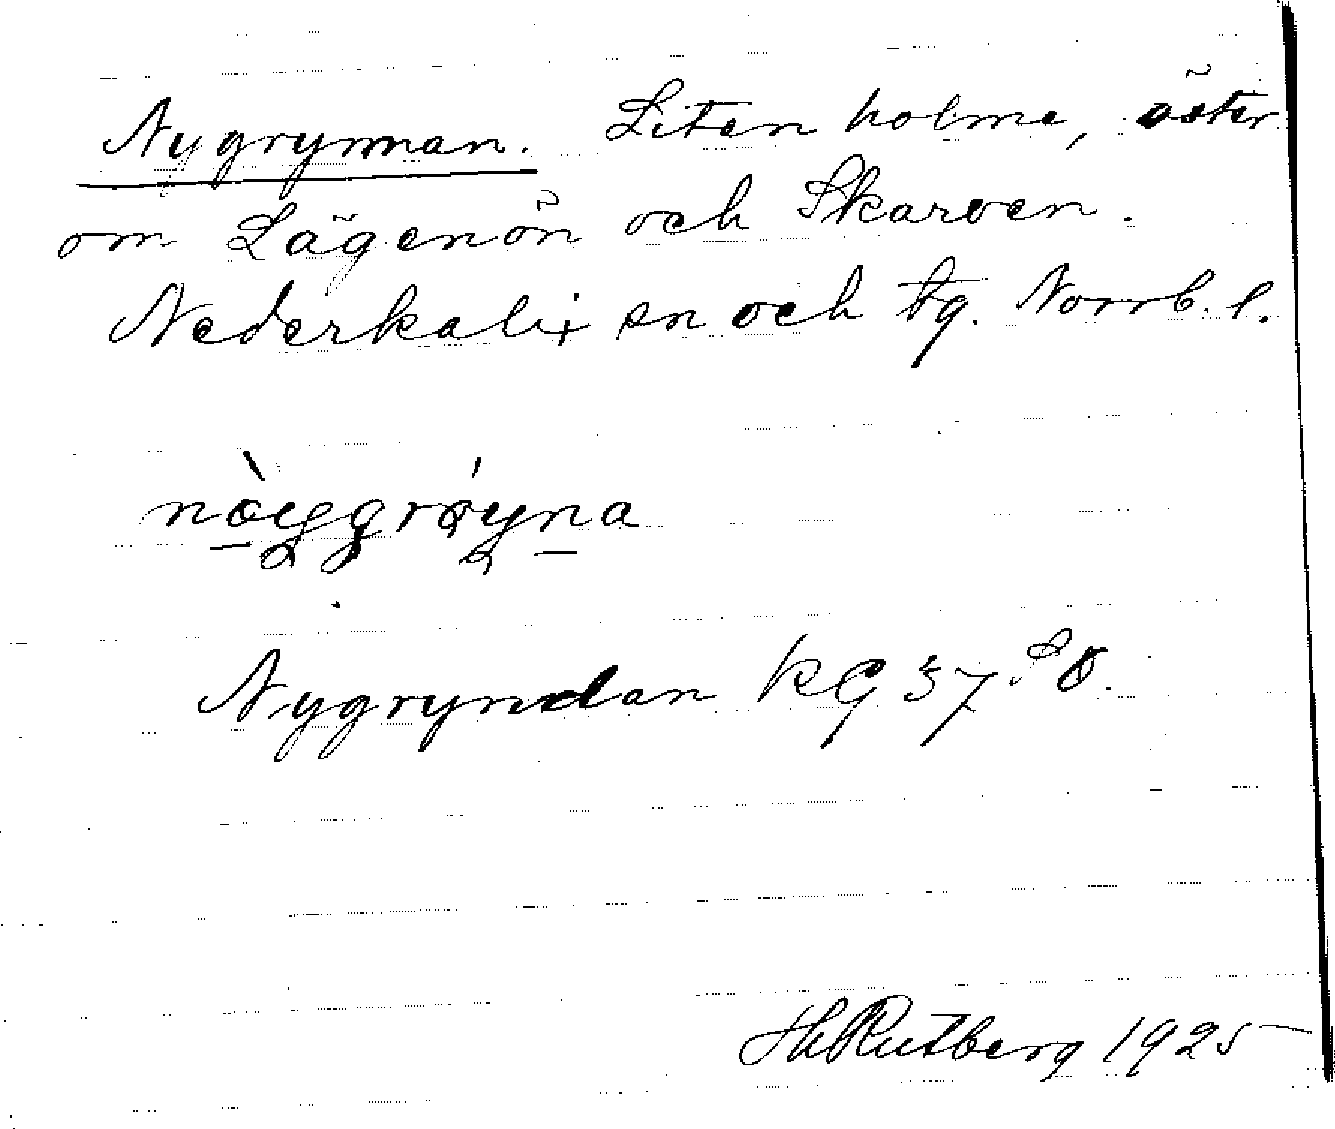 Nygrynnan. Liten holme, öster
om Lägenön och Skarven.
Nederkalix sn och tg. Norrb. l.
Nygryndan KG 37 SO.
HRutberg 1925